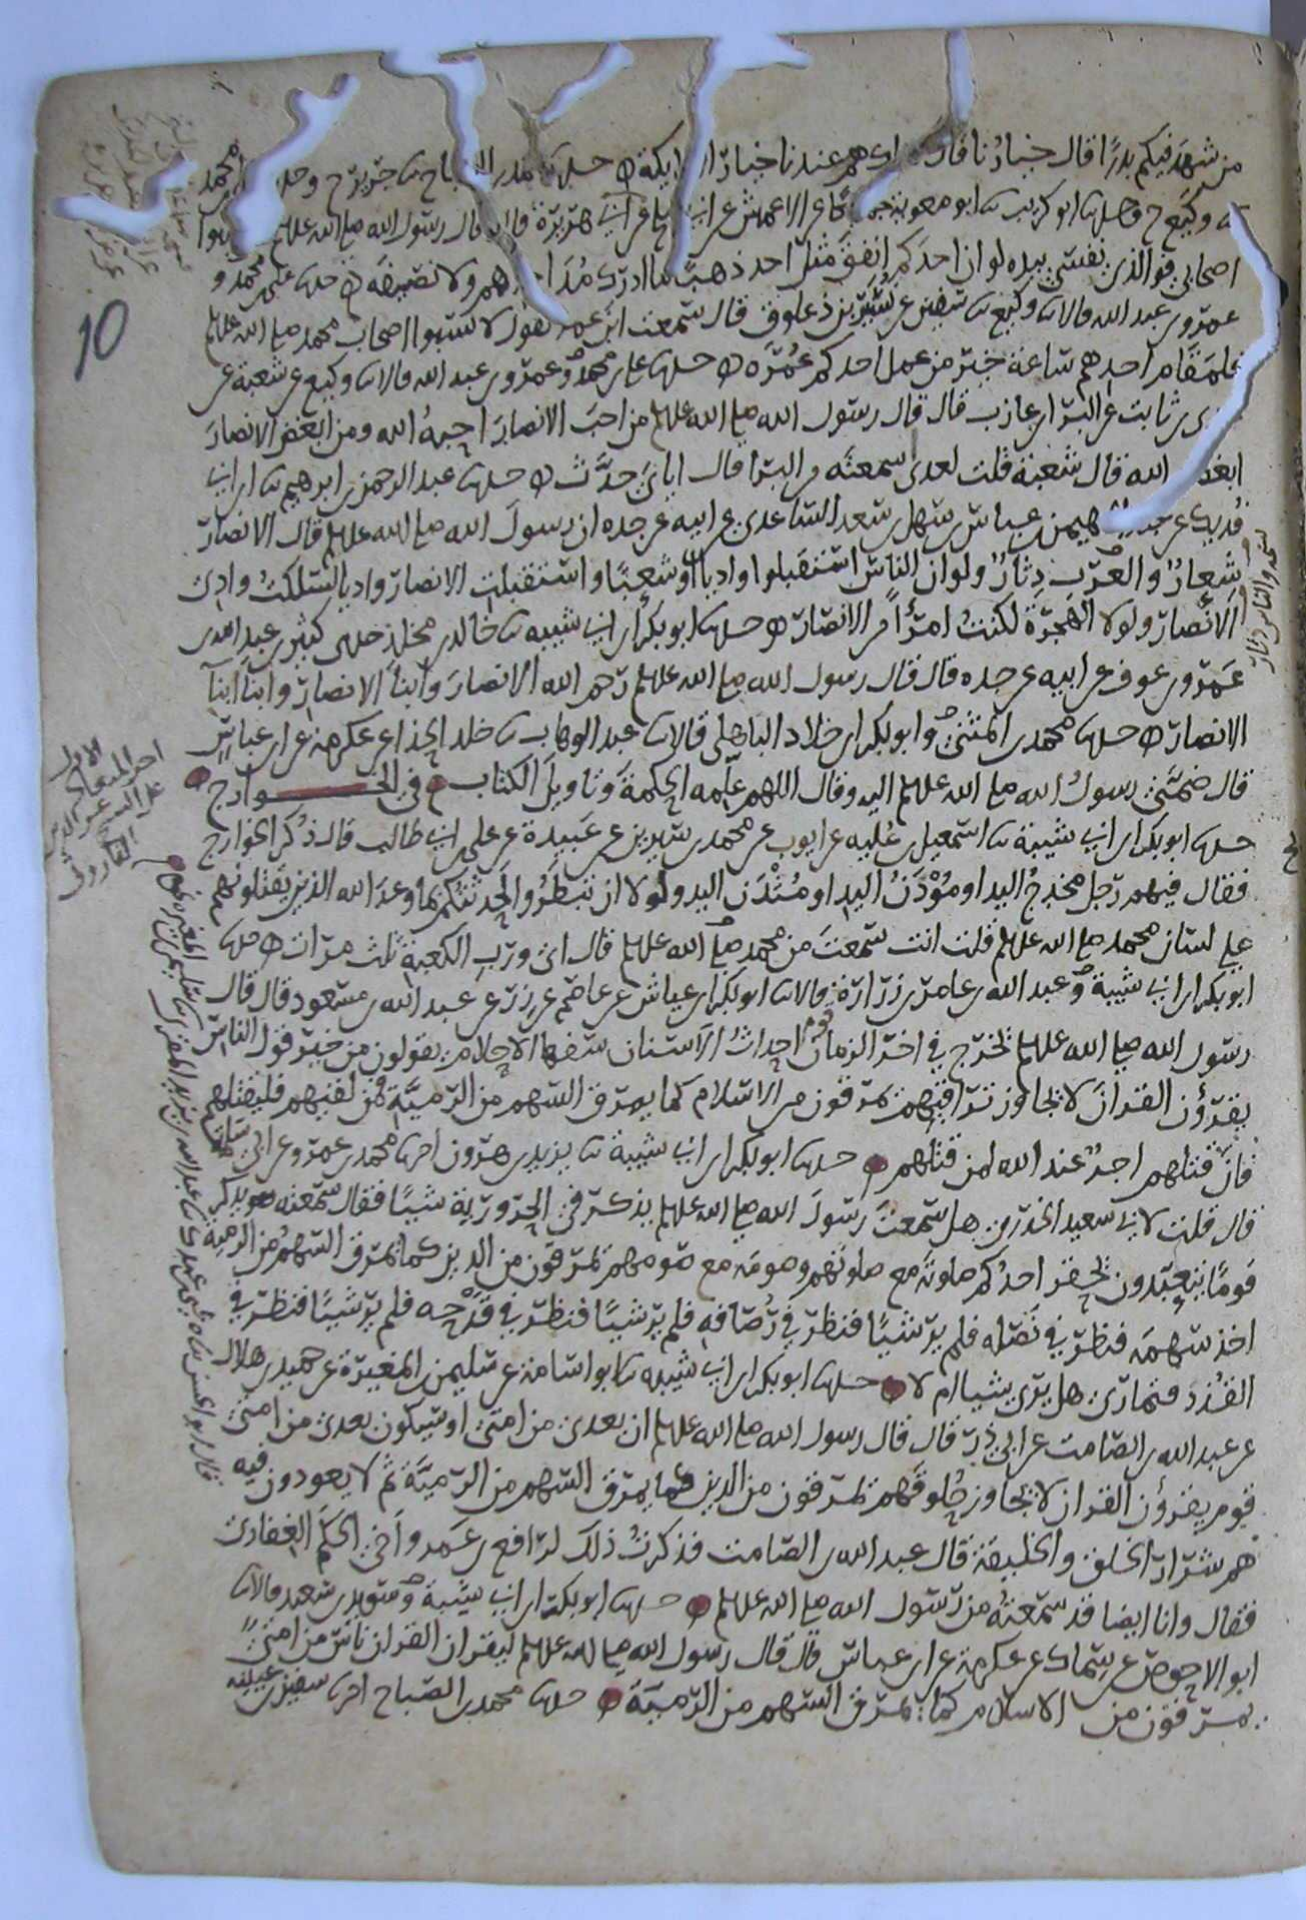 من شهد فيكم بدرا قال خيارنا قال هم عندنا خيار الملائكة حدثنا محمد بن الصباح ثنا جرير ح وحدثنا علي بن محمد
ثنا وكيع ح وحدثنا ابو كريب ثنا ابو معوية جميعا عن الاعمش عن ابي صالح عن ابي هريرة قال قال رسول الله صلى الله عليه وسلم لا تسبوا
اصحابي فوالذي نفسي بيده لو ان احدكم انفق مثل احد ذهبا ما ادرك مد احدهم ولا نصيفه حدثنا علي بن محمد و
عمرو بن عبد الله قالا ثنا وكيع ثنا سفين عن نسير بن ذعلوق قال سمعت ابن عمر يقول لا تسبوا اصحاب محمد صلى الله عليه وسلم
فلمقام احدهم ساعة خير من عمل احدكم عمره حدثنا علي بن محمد وعمرو بن عبد الله قالا ثنا وكيع عن شعبة عن
عدي بن ثابت عن البرا بن عازب قال قال رسول الله صلى الله عليه وسلم من احب الانصار احبه الله ومن ابغض الانصار
ابغضه الله قال شعبة قلت لعدي اسمعته من البرا قال اياي حدث حدثنا عبد الرحمن بن ابرهيم ثنا ابن ابي
فديك عن عبد المهيمن بن عباس بن سهل بن سعد الساعدي عن ابيه عن جده ان رسول الله صلى الله عليه وسلم قال الانصار
شعار والعرب دثار ولو ان الناس استقبلوا واديا او شعبا واستقبلت الانصار واديا لسلكت وادي
الانصار ولولا الهجرة لكنت امرأ من الانصار حدثنا ابو بكر بن ابي شيبه ثنا خالد بن مخلد حدثني كثير بن عبد الله بن
عمرو بن عوف عن ابيه عن جده قال قال رسول الله صلى الله عليه وسلم رحم الله الانصار وابنا الانصار وابنا ابنآ
الانصار حدثنا محمد بن المثنى وابو بكر بن خلاد الباهلي قالا ثنا عبد الوهاب ثنا خلد الحذا عن عكرمة عن ابن عباس
قال ضمني رسول الله صلى الله عليه وسلم اليه وقال اللهم علمه الحكمة وتاويل الكتاب في الخوارج
حدثنا ابو بكر بن ابي شيبة ثنا اسمعيل بن عليه عن ايوب عن محمد بن سيرين عن عبيدة عن علي بن ابي طالب قال ذكر الخوارج
فقال فيهم رجل مخدج اليد او مؤدن اليد او مثدن اليد ولولا ان تبطروا لحدثتكم بما وعد الله الذين يقتلونهم
على لسان محمد صلى الله عليه وسلم قلت انت سمعت من محمد صلى الله عليه وسلم قال اي ورب الكعبة ثلث مرات حدثنا
ابو بكر بن ابي شيبة وعبد الله بن عامر بن زرارة قالا ثنا ابو بكر بن عياش عن عاصم عن زر عن عبد الله بن مسعود قال قال
رسول الله صلى الله عليه وسلم يخرج في اخر الزمان قوم احداث الاسنان سفها الاحلام يقولون من خير قول الناس
يقرؤن القران لا يجاوز تراقيهم يمرقون من الاسلام كما يمرق السهم من الرمية فمن لقيهم فليقتلهم
فان قتلهم اجر عند الله لمن قتلهم حدثنا ابو بكر بن ابي شيبة ثنا يزيد بن هرون اخبرنا محمد بن عمرو عن ابي سلمة
قال قلت لابي سعيد الخدري هل سمعت رسول الله صلى الله عليه وسلم يذكر في الحرورية شيا فقال سمعته يذكر
قوما يتعبدون يحقر احدكم صلوته مع صلوتهم وصومه مع صومهم يمرقون من الدين كما يمرق السهم من الرمية
اخذ سهمه فنظر في نصله فلم ير شيا فنظر في رصافه فلم ير شيا فنظر في قدحه فلم ير شيا فنظر في
القذذ فتمارى هل يرى شيا ام لا حدثنا ابو بكر بن ابي شيبه ثنا ابو اسامة عن سليمن بن المغيرة عن حميد بن هلال
عن عبد الله بن الصامت عن ابي ذر قال قال رسول الله صلى الله عليه وسلم ان بعدي من امتي او سيكون بعدي من امتي
قوم يقرؤن القران لا يجاوز حلوقهم يمرقون من الدين كما يمرق السهم من الرمية ثم لا يعودون فيه
هم شرار الخلق والخليقة قال عبد الله بن الصامت فذكرت ذلك لرافع بن عمرو اخي الحكم الغفاري
فقال وانا ايضا قد سمعته من رسول الله صلى الله عليه وسلم حدثنا ابو بكر بن ابي شيبة وسويد بن سعيد قالا ثنا
ابو الاحوص عن سماك عن عكرمة عن ابن عباس قال قال رسول الله صلى الله عليه وسلم ليقران القران ناس من امتي
يمرقون من الاسلام كما يمرق السهم من الرمية حدثنا محمد بن الصباح اخبرنا سفين بن عيينة
10
نسخه والناس دثار